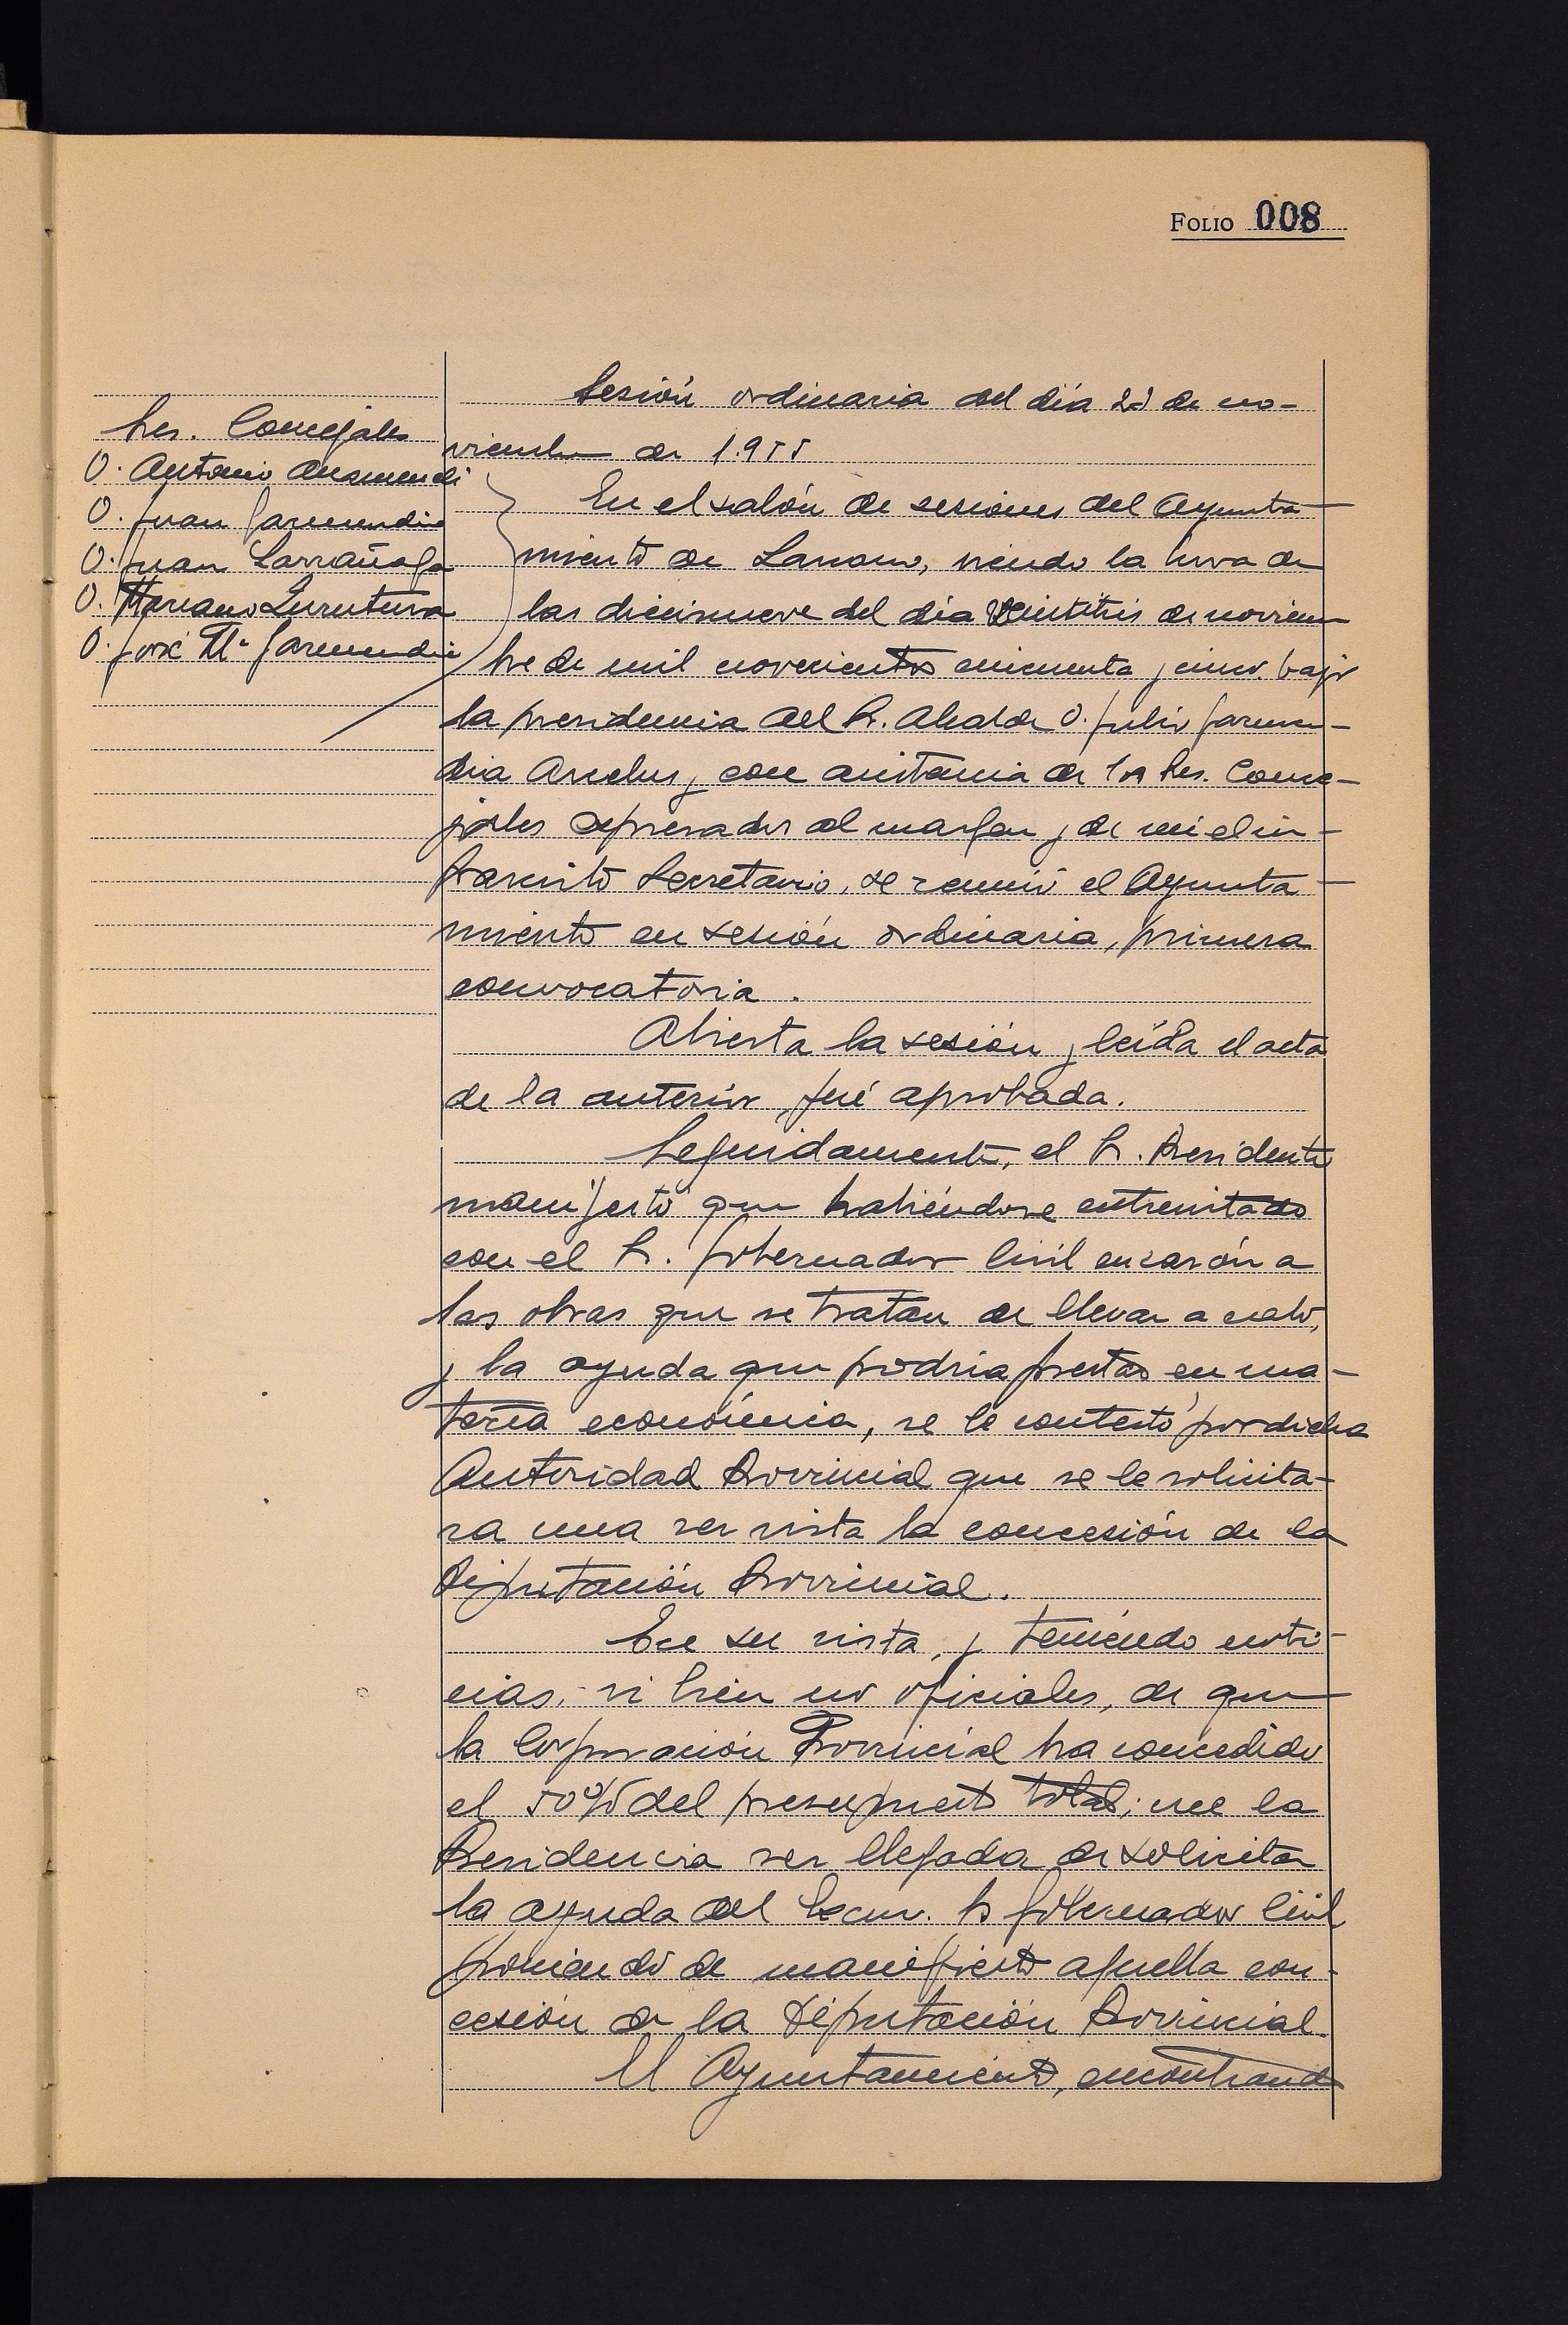 FOLIO 008
Sres. Concejales
D. Antonio Ansumendi
D. Juan Garmendia
D. Juan Larrañaga
D. Mariano Zurutuza
D. José Mª Garmendia
Sesión ordinaria del día 23 de no-
viembre de 1.955
En el salón de sesiones del Ayunta-
miento de Larraun, siendo la hora de
las diecinueve del día veintitrés de noviem
bre de mil novecientos cincuenta y cinco, bajo
la presidencia del Sr. Alcalde D. Julio Garmen-
dia y con asistencia de los Sres. Conce-
jales expresados al margen y de mi el in-
frascrito Secretario, se reunió el Ayunta-
miento en sesión ordinaria, primera
convocatoria.
Abierta la sesión y leída el acta
de la anterior, fué aprobada.
Seguidamente, el Sr. Presidente
manifestó que habiéndose entrevistado
con el Sr. Gobernador Civil en razón a
las obras que se tratan de llevar a cabo,
y la ayuda que podría prestar en ma-
teria económica, se le contestó por dicha
Autoridad Provincial que se le solicita-
ra una vez vista la concesión de la
Diputación Provincial.
En su vista, y teniendo noti-
cias, si bien no oficiales, de que
la Corporación Provincial ha concedido
el 50% del presupuesto total; cree la
Presidencia ser llegada de solicitar
la ayuda del Excmo. Sr Gobernador Civil
poniendo de manifiesto aquella con-
cesión de la Diputación Provincial.
El Ayuntamiento, encontrando